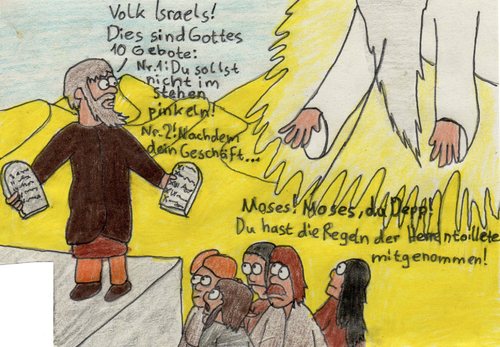 Volk Israels!
Dies sind Gottes
10 Gebote:
Nr.1: Du sollst
nicht im
Stehen
pinkeln!
Nr.2: Nachdem
dein Geschäft...
Moses! Moses, du Depp!
Du hast die Regeln der Herrentoilette
mitgenommen!